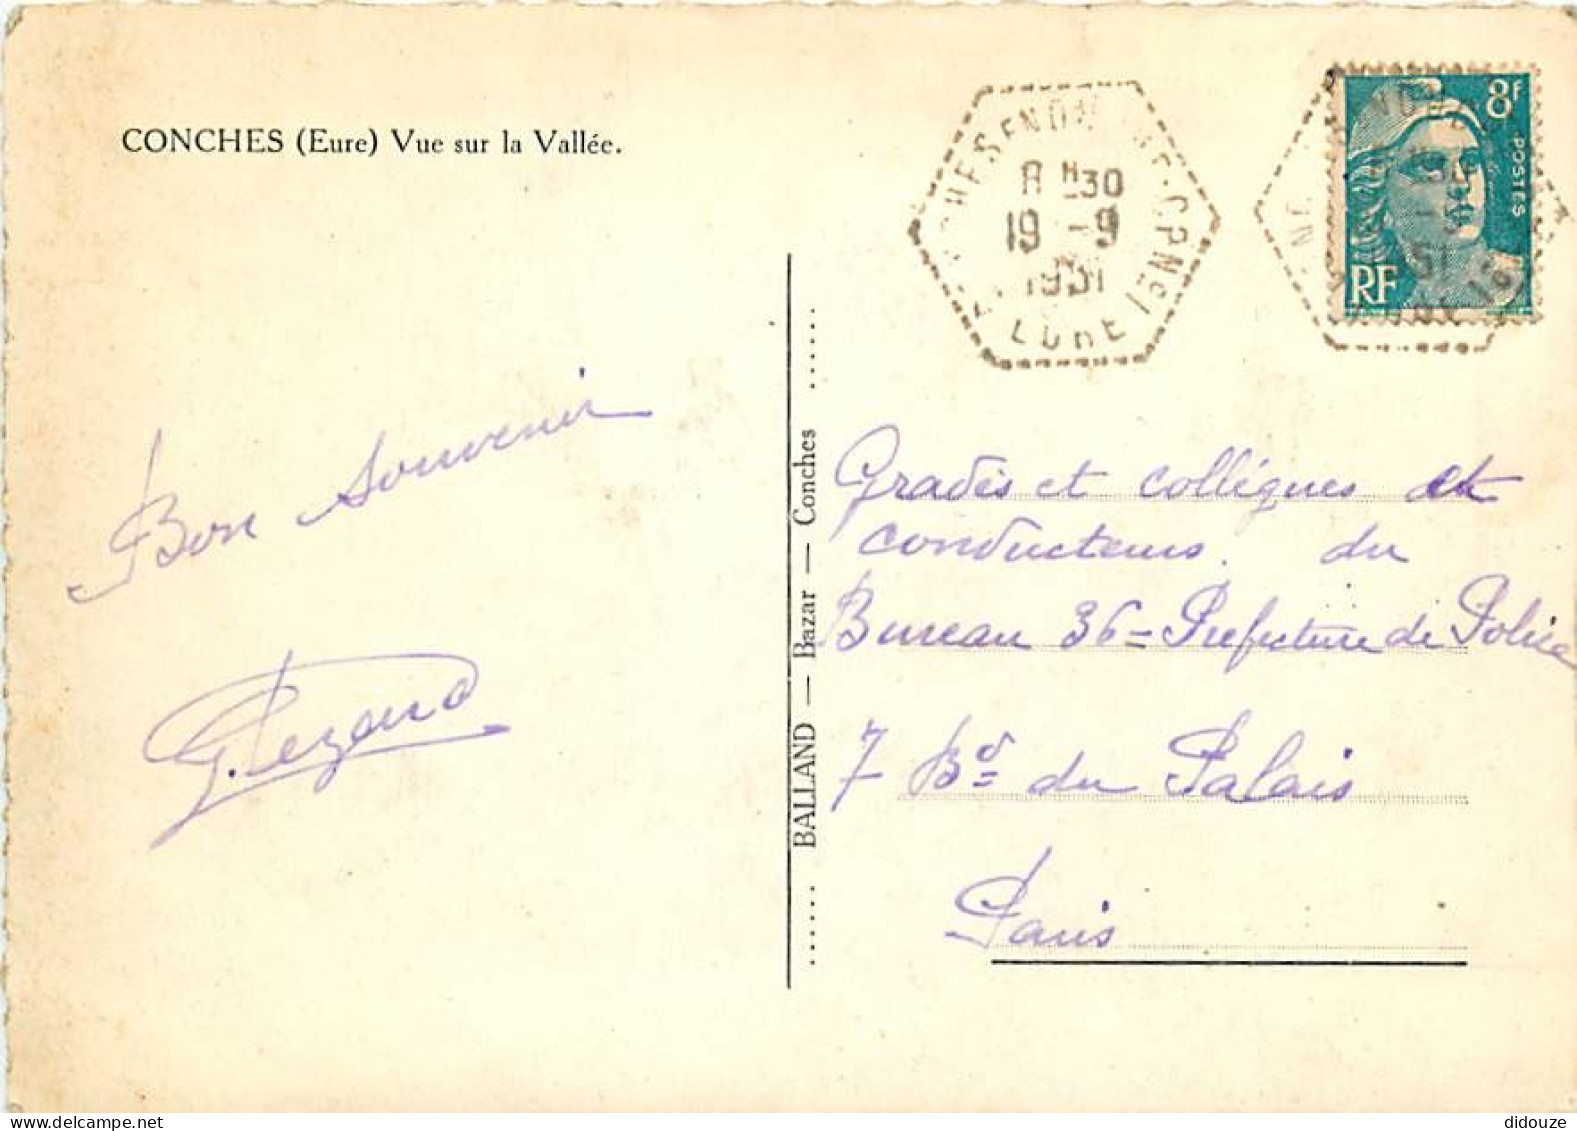 CONCHES (Eure) Vue sur la Vallée.
8 H 30
19 - 9
1951
EURE
8F
POSTES
RF
Bon souvenir
BALLAND — Bazar — Conches
Gradés et collègues et
conducteurs du
Bureau 36 = Préfecture de Police
7 Bd du Palais
Paris
didouze